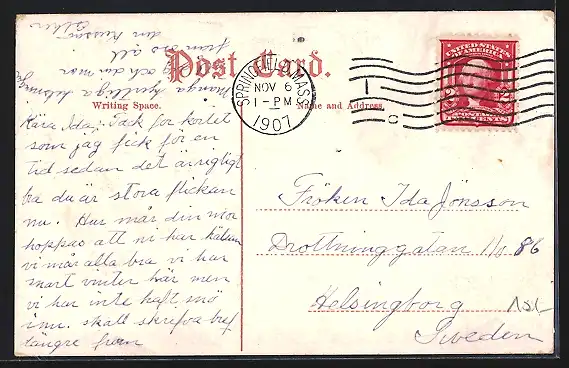 Post Card.
Writing Space.
Name and Address
SPRINGFIELD, MASS.
NOV 6
1-PM
1907
UNITED STATES
OF AMERICA
TWO CENTS
Kära Ida; Tack för kortet
som jag fick för en
tid sedan det är rigtigt
bra du är stora flickan
nu. Hur mår din mor
hoppas att ni har hälsan
vi mår alla bra vi har
snart vinter här men
vi har inte haft snö
innu. skall skrefva bref
längre fram
Många hjertliga helsningar
och din mor
från oss alt
din kusson
Fröken Ida Jönsson
Drottninggatan No. 86
Helsingborg
Sweden